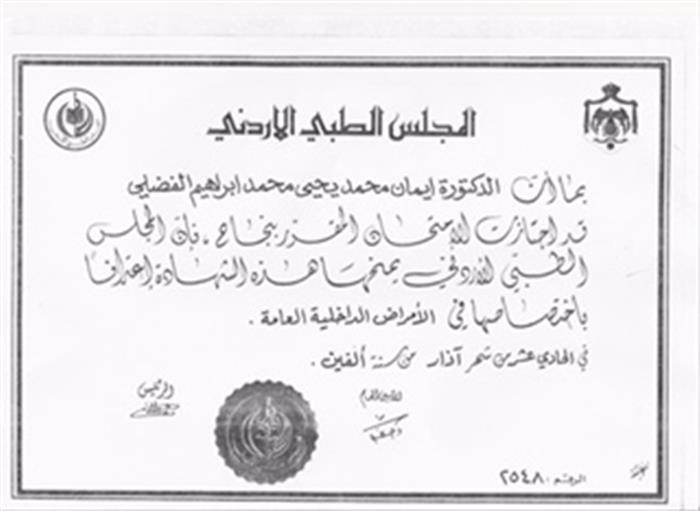 المجلس الطبي الاردني
بما أن الدكتورة ايمان محمد يحيى محمد ابراهيم الفضايلي
قد اجتازت الامتحان المقرر بنجاح ، فإن المجلس
الطبي الأردني يمنحها هذه الشهادة إعترافا
باختصاصها في الأمراض الداخلية العامة .
في الحادي عشر من شهر آذار من سنة ألفين .
الأمين العام
الرئيس
الرقم ٢٥٤٨٠